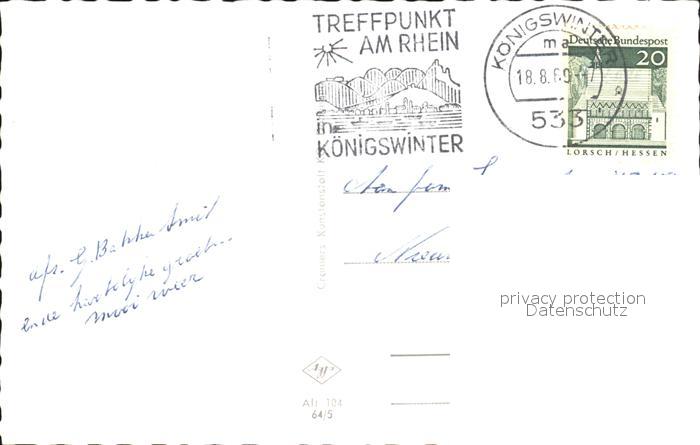 TREFFPUNKT
AM RHEIN
in
KÖNIGSWINTER
KÖNIGSWINTER
ma
18.8.69
a
533
Deutsche Bundespost
20
LORSCH/HESSEN
Aan fam
afs. G. Bakker Smit
en de hartelijke groeten
mooi weer
privacy protection
Datenschutz
Agfa
Afi 104
64/5